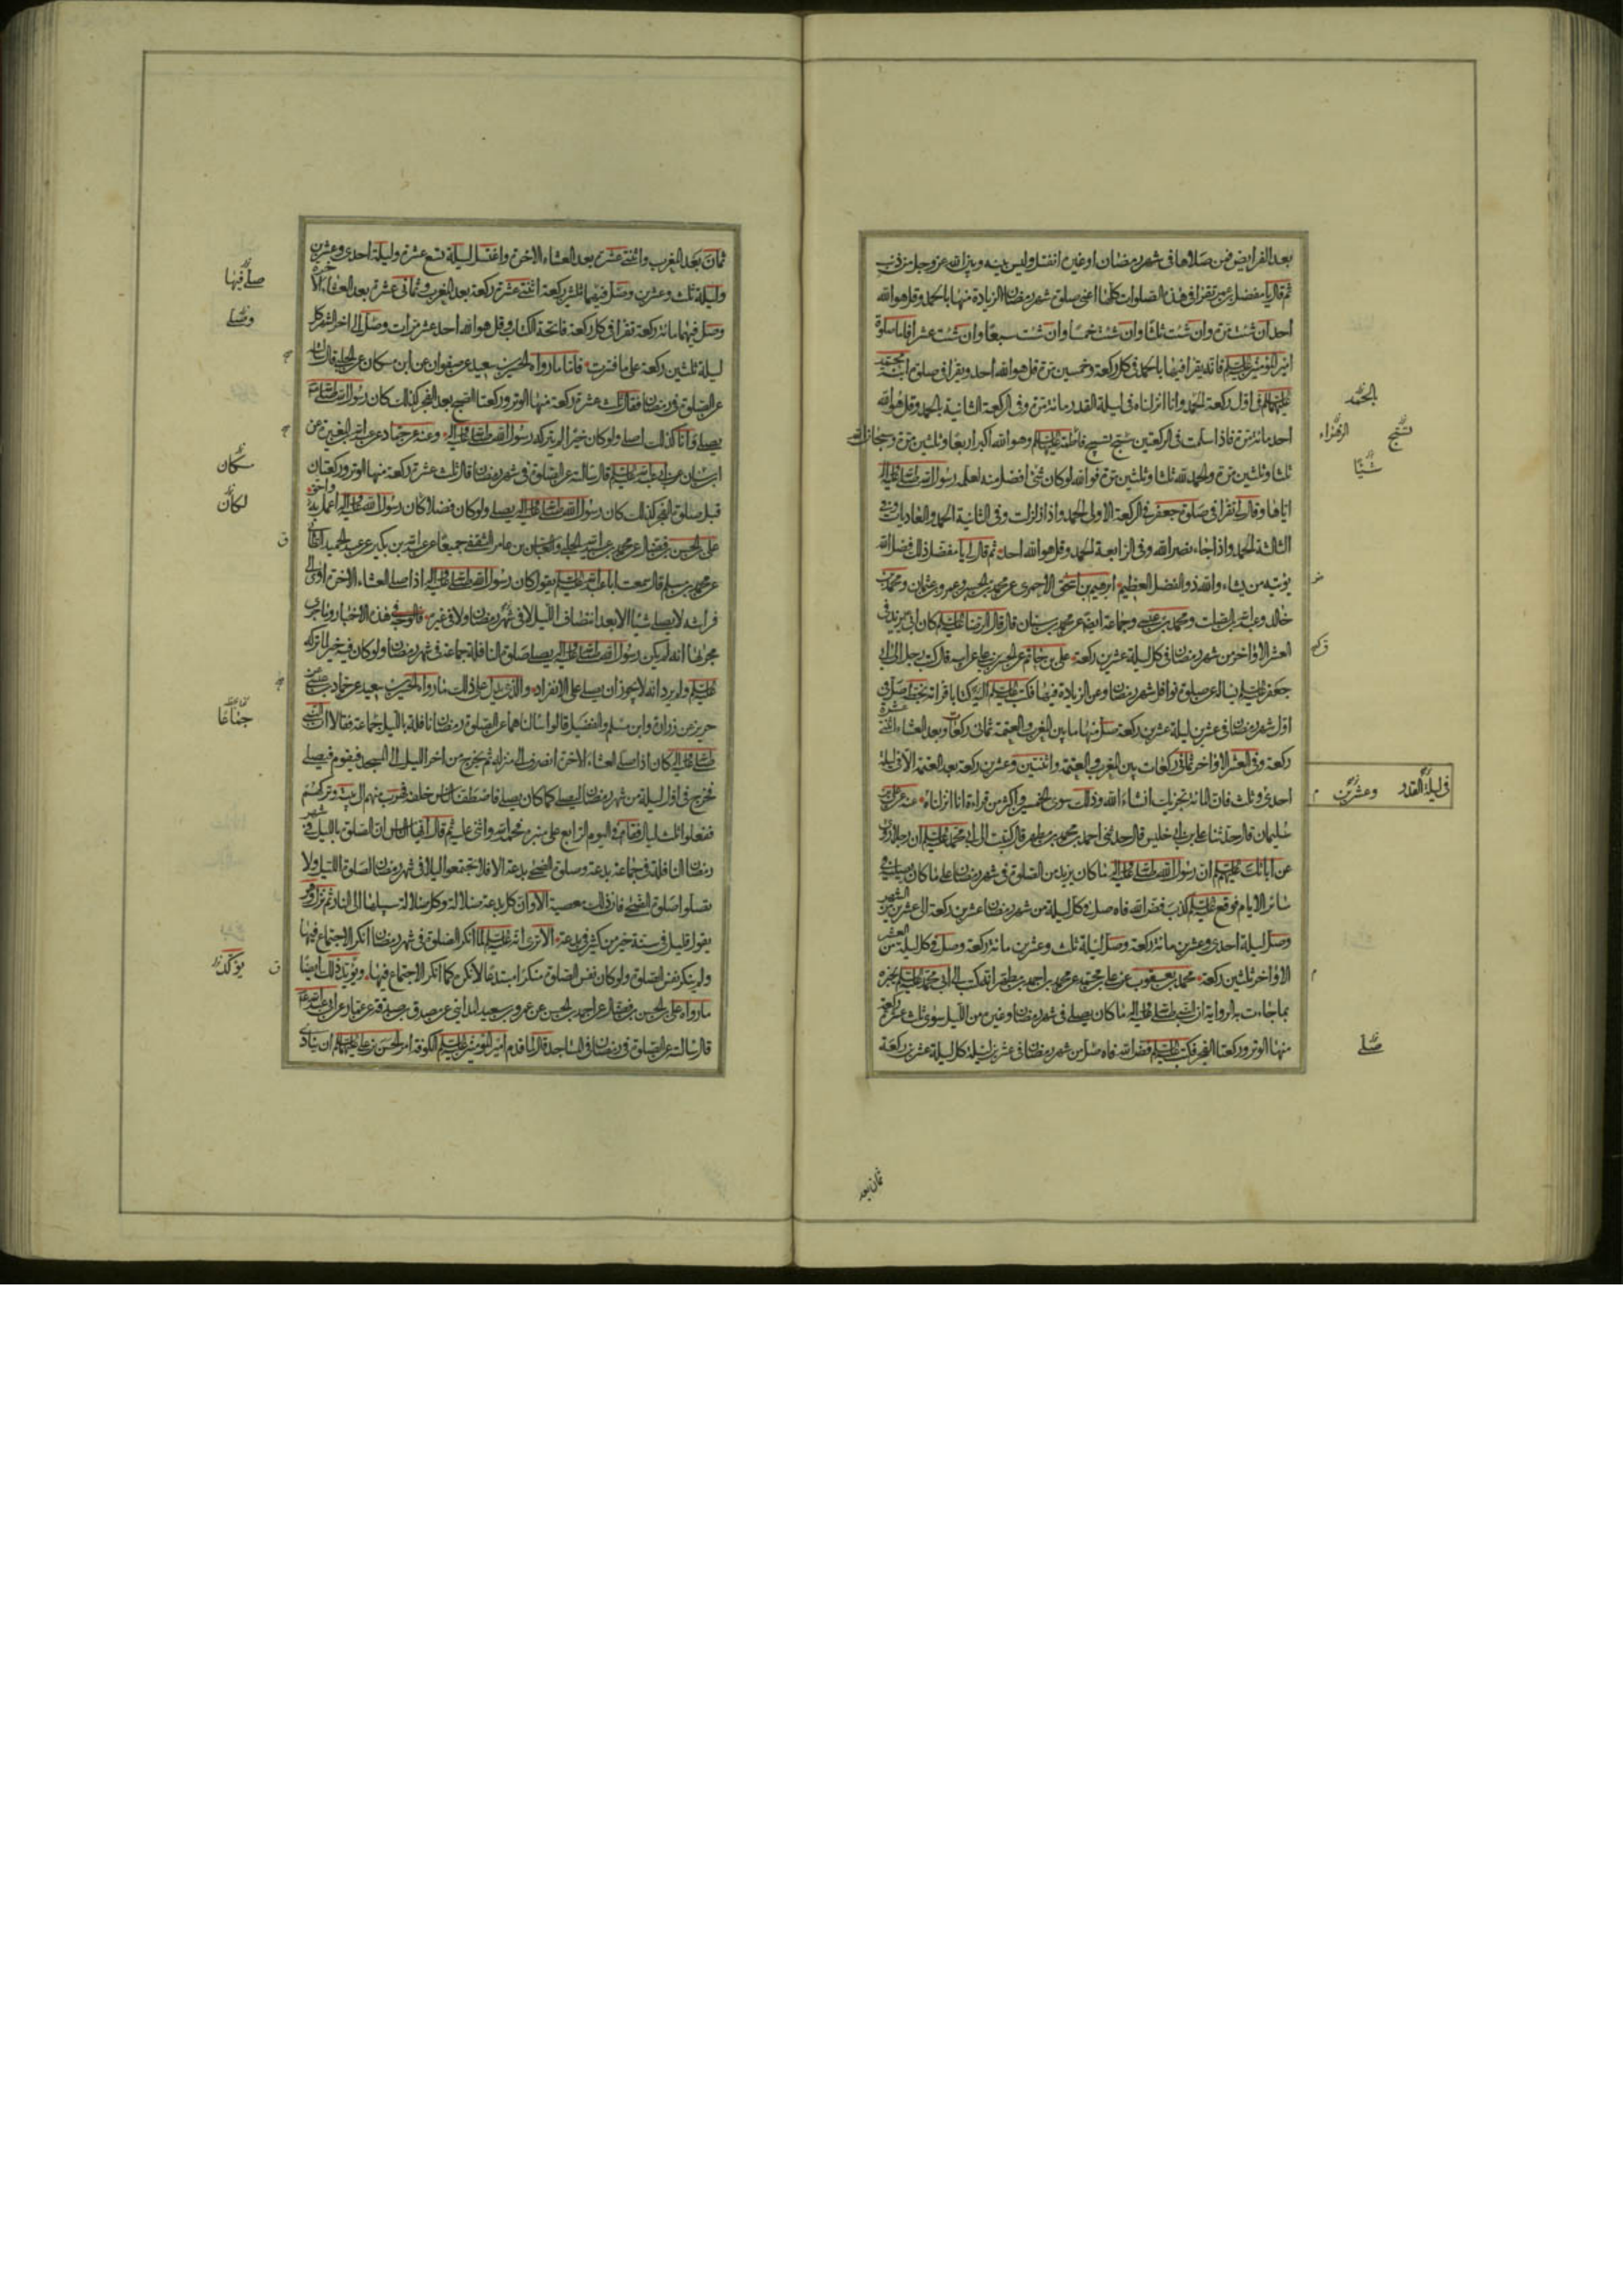 بعد الفرايض فمن صلاها فى شهر رمضان او غيره انفتل وليس بينه وبين الله عز وجل من ذنب
ثم قال يا مفضل بن عمر تقرا فى هذه الصلوات كلها اعنى صلوة شهر رمضان الزيادة منها بالحمد وقل هو الله
احد ان شئت مرة وان شئت ثلثا وان شئت خمسا وان شئت سبعا وان شئت عشرا فاما صلوة
امير المؤمنين عليه السلم فانه يقرا فيها بالحمد فى كل ركعة وخمسين مرة قل هو الله احد ويقرا فى صلوة ابنة محمد
عليهما السلم فى اول ركعة الحمد وانا انزلناه فى ليلة القدر مائة مرة وفى الركعة الثانية بالحمد وقل هو الله
احد مائة مرة فاذا سلمت فى الركعتين سبح تسبيح فاطمة عليها السلم وهو الله اكبر اربعا وثلثين مرة وسبحان الله
ثلثا وثلثين مرة والحمد لله ثلثا وثلثين مرة فوالله لو كان شئ افضل منه لعلمه رسول الله صلى الله عليه واله
اياها وقال لى تقرا فى صلوة جعفر فى الركعة الاولى الحمد واذا زلزلت وفى الثانية الحمد والعاديات وفى
الثالثة الحمد واذا جاء نصر الله وفى الرابعة الحمد وقل هو الله احد ثم قال لى يا مفضل ذلك فضل الله
يؤتيه من يشاء والله ذو الفضل العظيم ابرهيم بن اسحق الاحمرى عن محمد بن الحسين وعمرو بن عثمان ومحمد بن
خالد وعبد الله بن الصلت ومحمد بن عيسى وجماعة ايضا عن محمد بن سنان قال قال الرضا عليه السلم كان ابى يزيد فى
العشر الاواخر من شهر رمضان فى كل ليلة عشرين ركعة على بن حاتم عن الحسن بن على عن ابيه قال كتب رجل الى ابى
جعفر عليه السلم يساله عن صلوة نوافل شهر رمضان وعن الزيادة فيها فكتب عليه السلم اليه كتابا قراته بخطه صل فى
اول شهر رمضان فى عشرين ليلة عشرين ركعة صل منها ما بين المغرب والعتمة ثمانى ركعات وبعد العشاء اثنتى عشرة
ركعة وفى العشر الاواخر ثمانى ركعات بين المغرب والعتمة واثنتين وعشرين ركعة بعد العتمة الا فى ليلة
احدى وثلث فان المائة تجزيك انشاء الله وذلك سوى الخمسين واكثر من قراءة انا انزلناه عنه عن على بن
سليمان قال حدثنا على بن ابى خليس قال حدثنى احمد بن محمد بن مطهر قال كتبت الى ابى محمد عليه السلم ان رجلا روى
عن ابائك عليهم السلم ان رسول الله صلى الله عليه واله ما كان يزيد من الصلوة فى شهر رمضان على ما كان يصليه فى
سائر الايام فوقع عليه السلم كذب فض الله فاه صل فى كل ليلة من شهر رمضان عشرين ركعة الى عشرين من الشهر
وصل ليلة احدى وعشرين مائة ركعة وصل ليلة ثلث وعشرين مائة ركعة وصل فى كل ليلة من العشر
الاواخر ثلثين ركعة محمد بن يعقوب عن على بن محمد عن محمد بن احمد بن مطهر انه كتب الى ابى محمد عليه السلم يخبره
بما جاءت به الرواية ان النبى صلى الله عليه واله ما كان يصلى فى شهر رمضان وغيره من الليل سوى ثلث عشرة ركعة
منها الوتر وركعتا الفجر فكتب عليه السلم فض الله فاه صل من شهر رمضان فى عشرين ليلة كل ليلة عشرين ركعة
الحمد
تسبح الزهراء
شيئا
فى ليلة القدر وعشرين
صلى
ثمان بعد
ثمان بعد المغرب واثنتى عشرة بعد العشاء الاخرة واغتسل ليلة تسع عشرة وليلة احدى وعشرين
وليلة ثلث وعشرين وصل فيهما ثلثين ركعة اثنتى عشرة ركعة بعد المغرب وثمانى عشرة بعد العشاء الاخرة
وصل فيهما مائة ركعة تقرا فى كل ركعة فاتحة الكتاب وقل هو الله احد عشر مرات وصل الى اخر الشهر كل
ليلة ثلثين ركعة على ما فسرت فاما ما رواه الحسين بن سعيد عن صفوان عن ابن مسكان عن الحلبى قال سالته
عن الصلوة فى رمضان فقال ثلث عشرة ركعة منها الوتر وركعتا الصبح بعد الفجر كذلك كان رسول الله صلى الله عليه
يصلى وانا كذلك اصلى ولو كان خيرا لم يتركه رسول الله صلى الله عليه واله وعنه عن حماد عن عبد الله بن المغيرة عن
ابن سنان عن ابى عبد الله عليه السلم قال سالته عن الصلوة فى شهر رمضان قال ثلث عشرة ركعة منها الوتر وركعتان
قبل صلوة الفجر كذلك كان رسول الله صلى الله عليه واله يصلى ولو كان فضلا كان رسول الله صلى الله عليه واله اعمل به واحق
على بن الحسن بن فضال عن محمد بن عبد الله الحلبى والعباس بن عامر الثقفى جميعا عن عبد الله بن بكير عن عبد الحميد الطائى
عن محمد بن مسلم قال سمعت ابا عبد الله عليه السلم يقول كان رسول الله صلى الله عليه واله اذا صلى العشاء الاخرة اوى الى
فراشه لا يصلى شيئا الا بعد انتصاف الليل لا فى شهر رمضان ولا فى غيره فالوجه فى هذه الاخبار وما جرى
مجراها انه لم يكن رسول الله صلى الله عليه واله يصلى صلوة النافلة جماعة فى شهر رمضان ولو كان فيه خير لما تركه
عليه السلم ولم يرد انه لا يجوز ان يصلى على الانفراد والذى يدل على ذلك ما رواه الحسين بن سعيد عن حماد بن عيسى عن
حريز عن زرارة وابن مسلم والفضيل قالوا سالناهما عن الصلوة فى رمضان نافلة بالليل جماعة فقالا ان النبى
صلى الله عليه واله كان اذا صلى العشاء الاخرة انصرف الى منزله ثم يخرج من اخر الليل الى المسجد فيقوم فيصلى
فخرج فى اول ليلة من شهر رمضان ليصلى كما كان يصلى فاصطف الناس خلفه فهرب منهم الى بيته وتركهم
ففعلوا ثلث ليال فقام فى اليوم الرابع على منبره فحمد الله واثنى عليه ثم قال ايها الناس ان الصلوة بالليل فى شهر
رمضان النافلة فى جماعة بدعة وصلوة الضحى بدعة الا فلا تجتمعوا ليلا فى شهر رمضان لصلوة الليل ولا
تصلوا صلوة الضحى فان ذلك معصية الا وان كل بدعة ضلالة وكل ضلالة سبيلها الى النار ثم نزل وهو
يقول قليل فى سنة خير من كثير فى بدعة الا ترى انه عليه السلم لما انكر الصلوة فى شهر رمضان انكر الاجتماع فيها
ولم ينكر نفس الصلوة ولو كان نفس الصلوة منكرا مبتدعا لانكره كما انكر الاجتماع فيها ويؤيد ذلك ايضا
ما رواه على بن الحسن بن فضال عن احمد بن الحسن عن عمرو بن سعيد المدائنى عن مصدق بن صدقة عن عمار عن ابى عبد الله عليه
قال سالته عن الصلوة فى رمضان فى المساجد قال لما قدم امير المؤمنين عليه السلم الكوفة امر الحسن بن على عليهما السلم ان ينادى
صلى فيها
وصلى
مسكان
لكان
جماعا
يؤكد